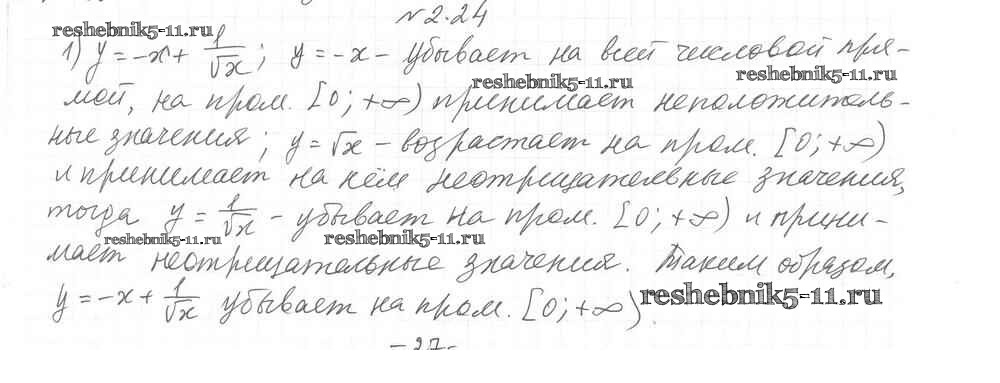 №2.24
reshebnik5-11.ru
1) y = -x + 1/√x ; y = -x - убывает на всей числовой пря-
reshebnik5-11.ru reshebnik5-11.ru
мой, на пром. [0; +∞) принимает неположитель-
ные значения; y = √x - возрастает на пром. [0; +∞)
и принимает на нём неотрицательные значения,
тогда y = 1/√x - убывает на пром. [0; +∞) и прини-
reshebnik5-11.ru reshebnik5-11.ru
мает неотрицательные значения. Таким образом,
y = -x + 1/√x убывает на пром. [0; +∞)
reshebnik5-11.ru
-27-